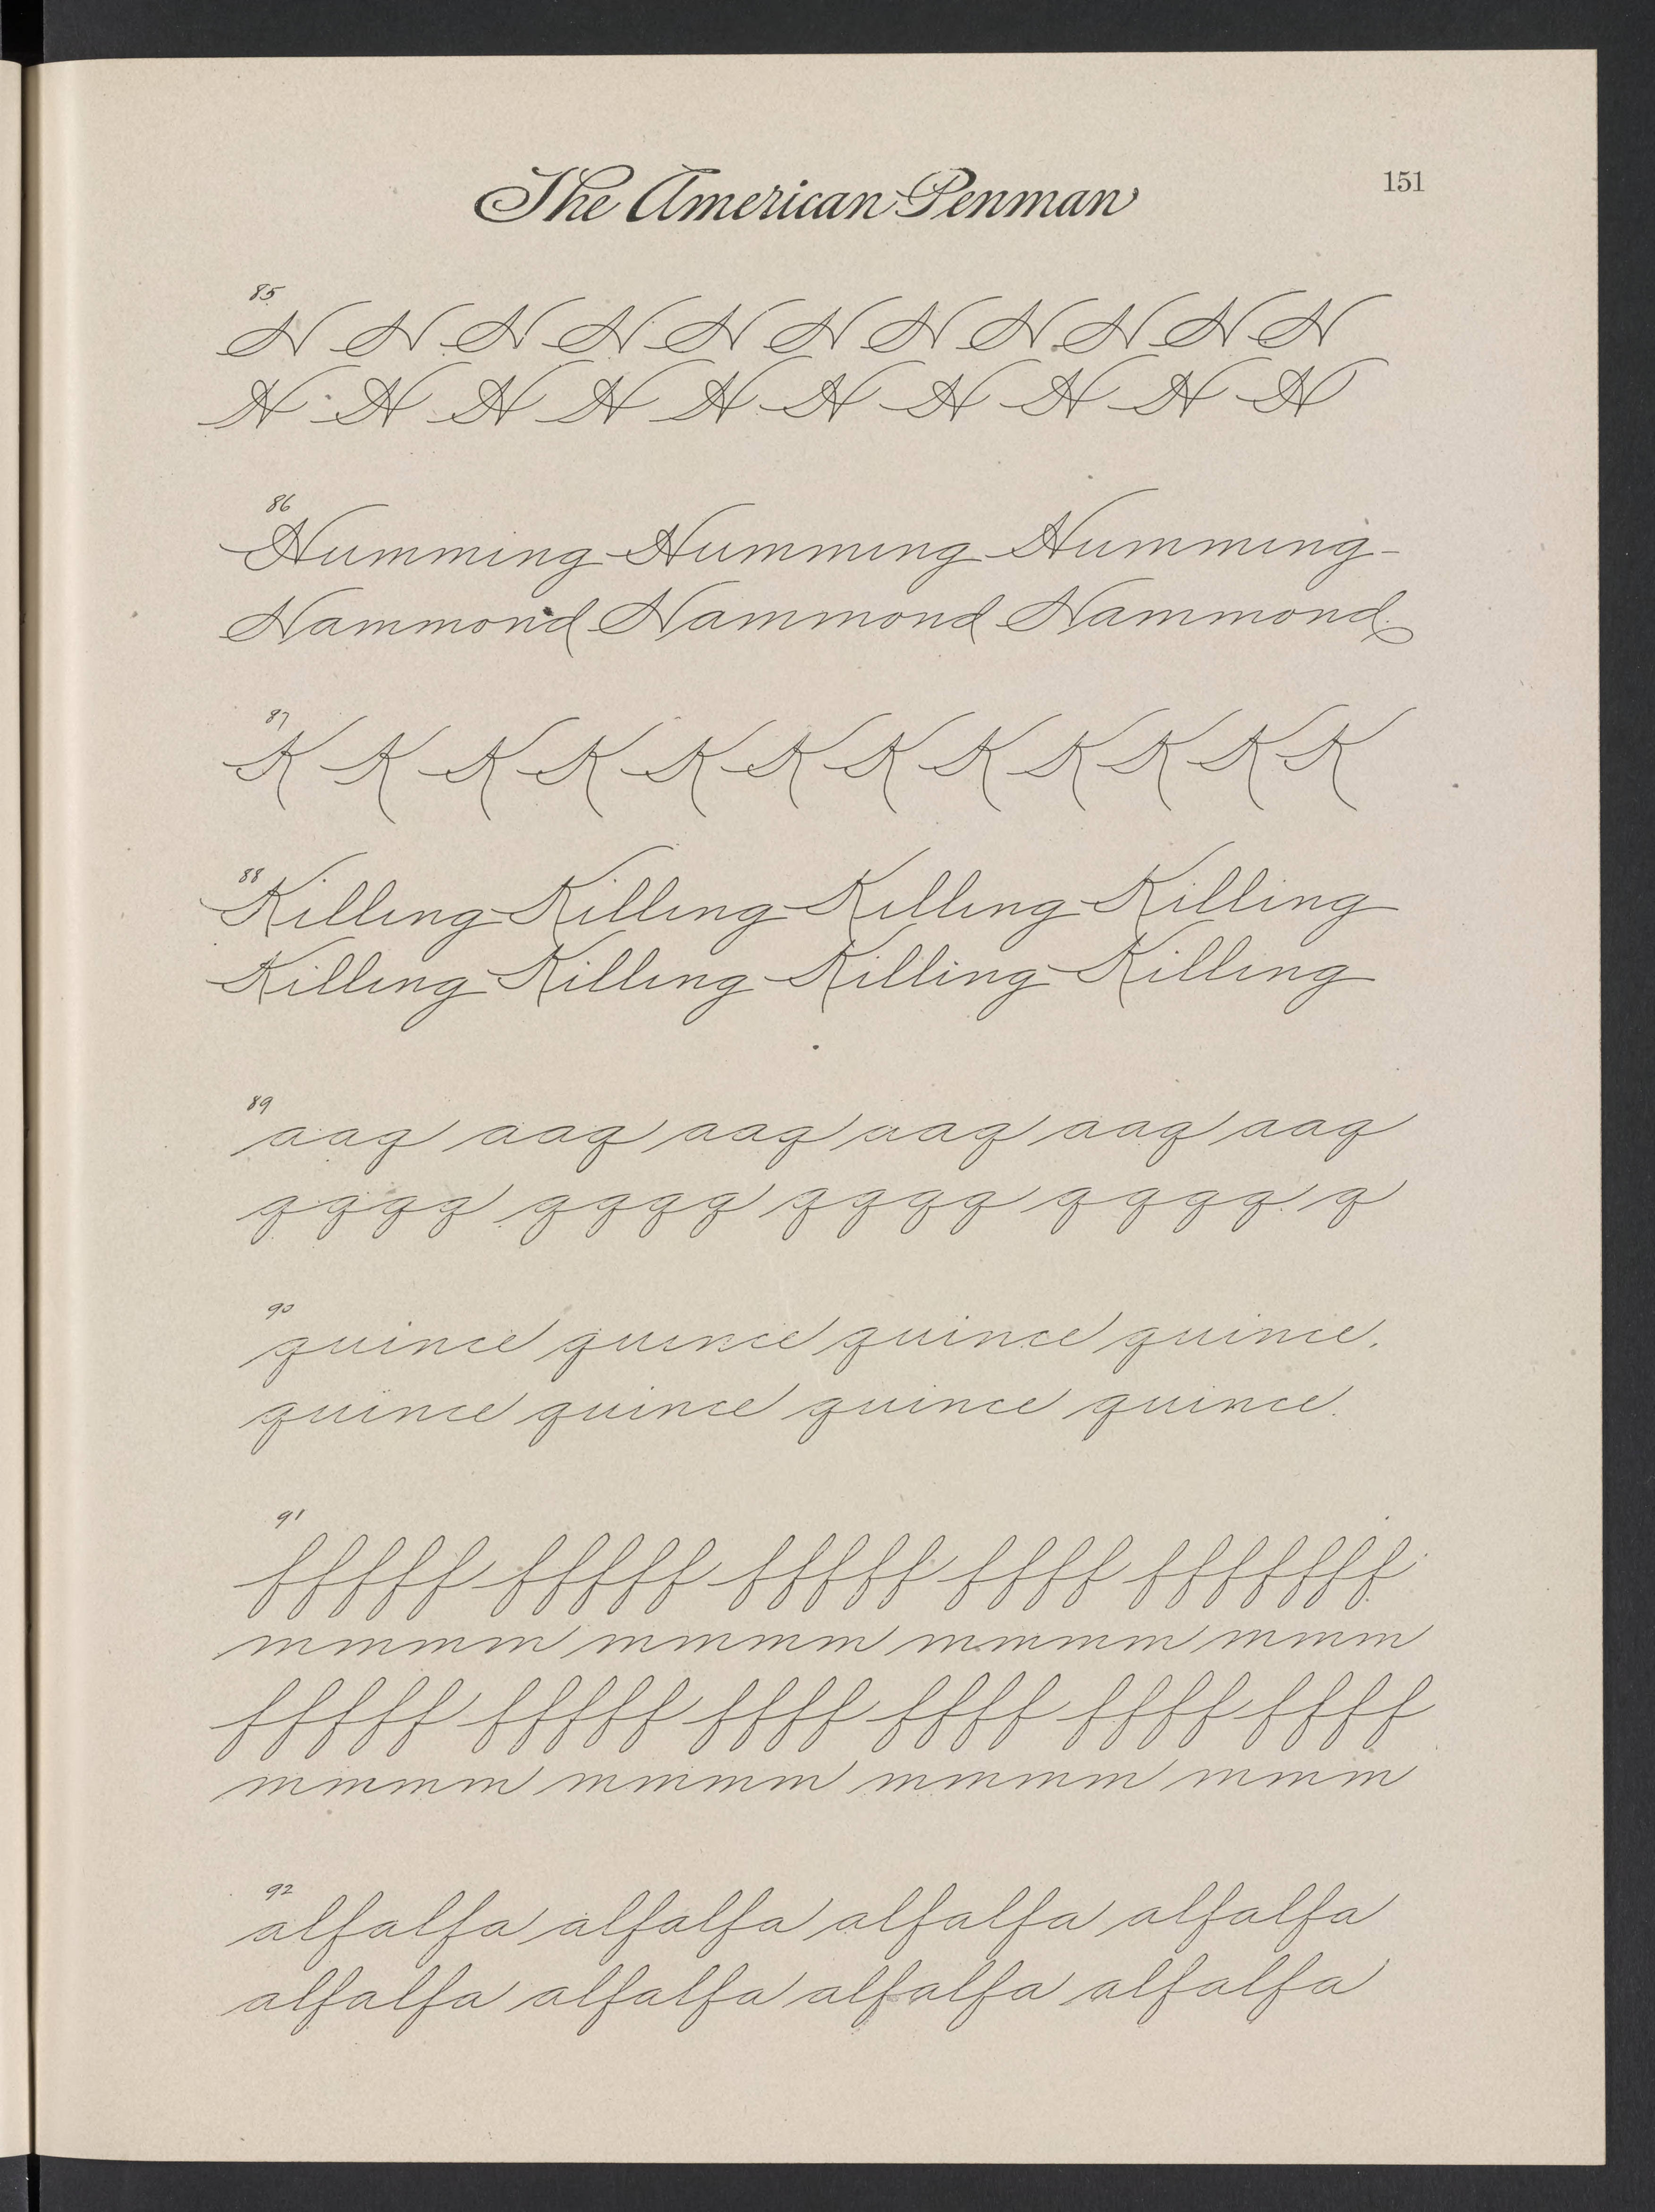 The American Penman
151
85
H H H H H H H H H H H
H H H H H H H H H H
86
Humming Humming Humming
Hammond Hammond Hammond
87
K K K K K K K K K K K K
88
Killing Killing Killing Killing
Killing Killing Killing Killing
89
aaq aaq aaq aaq aaq aaq
qqqq qqqq qqqq qqqq q
90
quince quince quince quince.
quince quince quince quince.
91
fffff fffff fffff ffff fffffff
mmmm mmmm mmmm mmm
fffff fffff ffff ffff ffff ffff
mmmm mmmm mmmm mmm
92
alfalfa alfalfa alfalfa alfalfa
alfalfa alfalfa alfalfa alfalfa